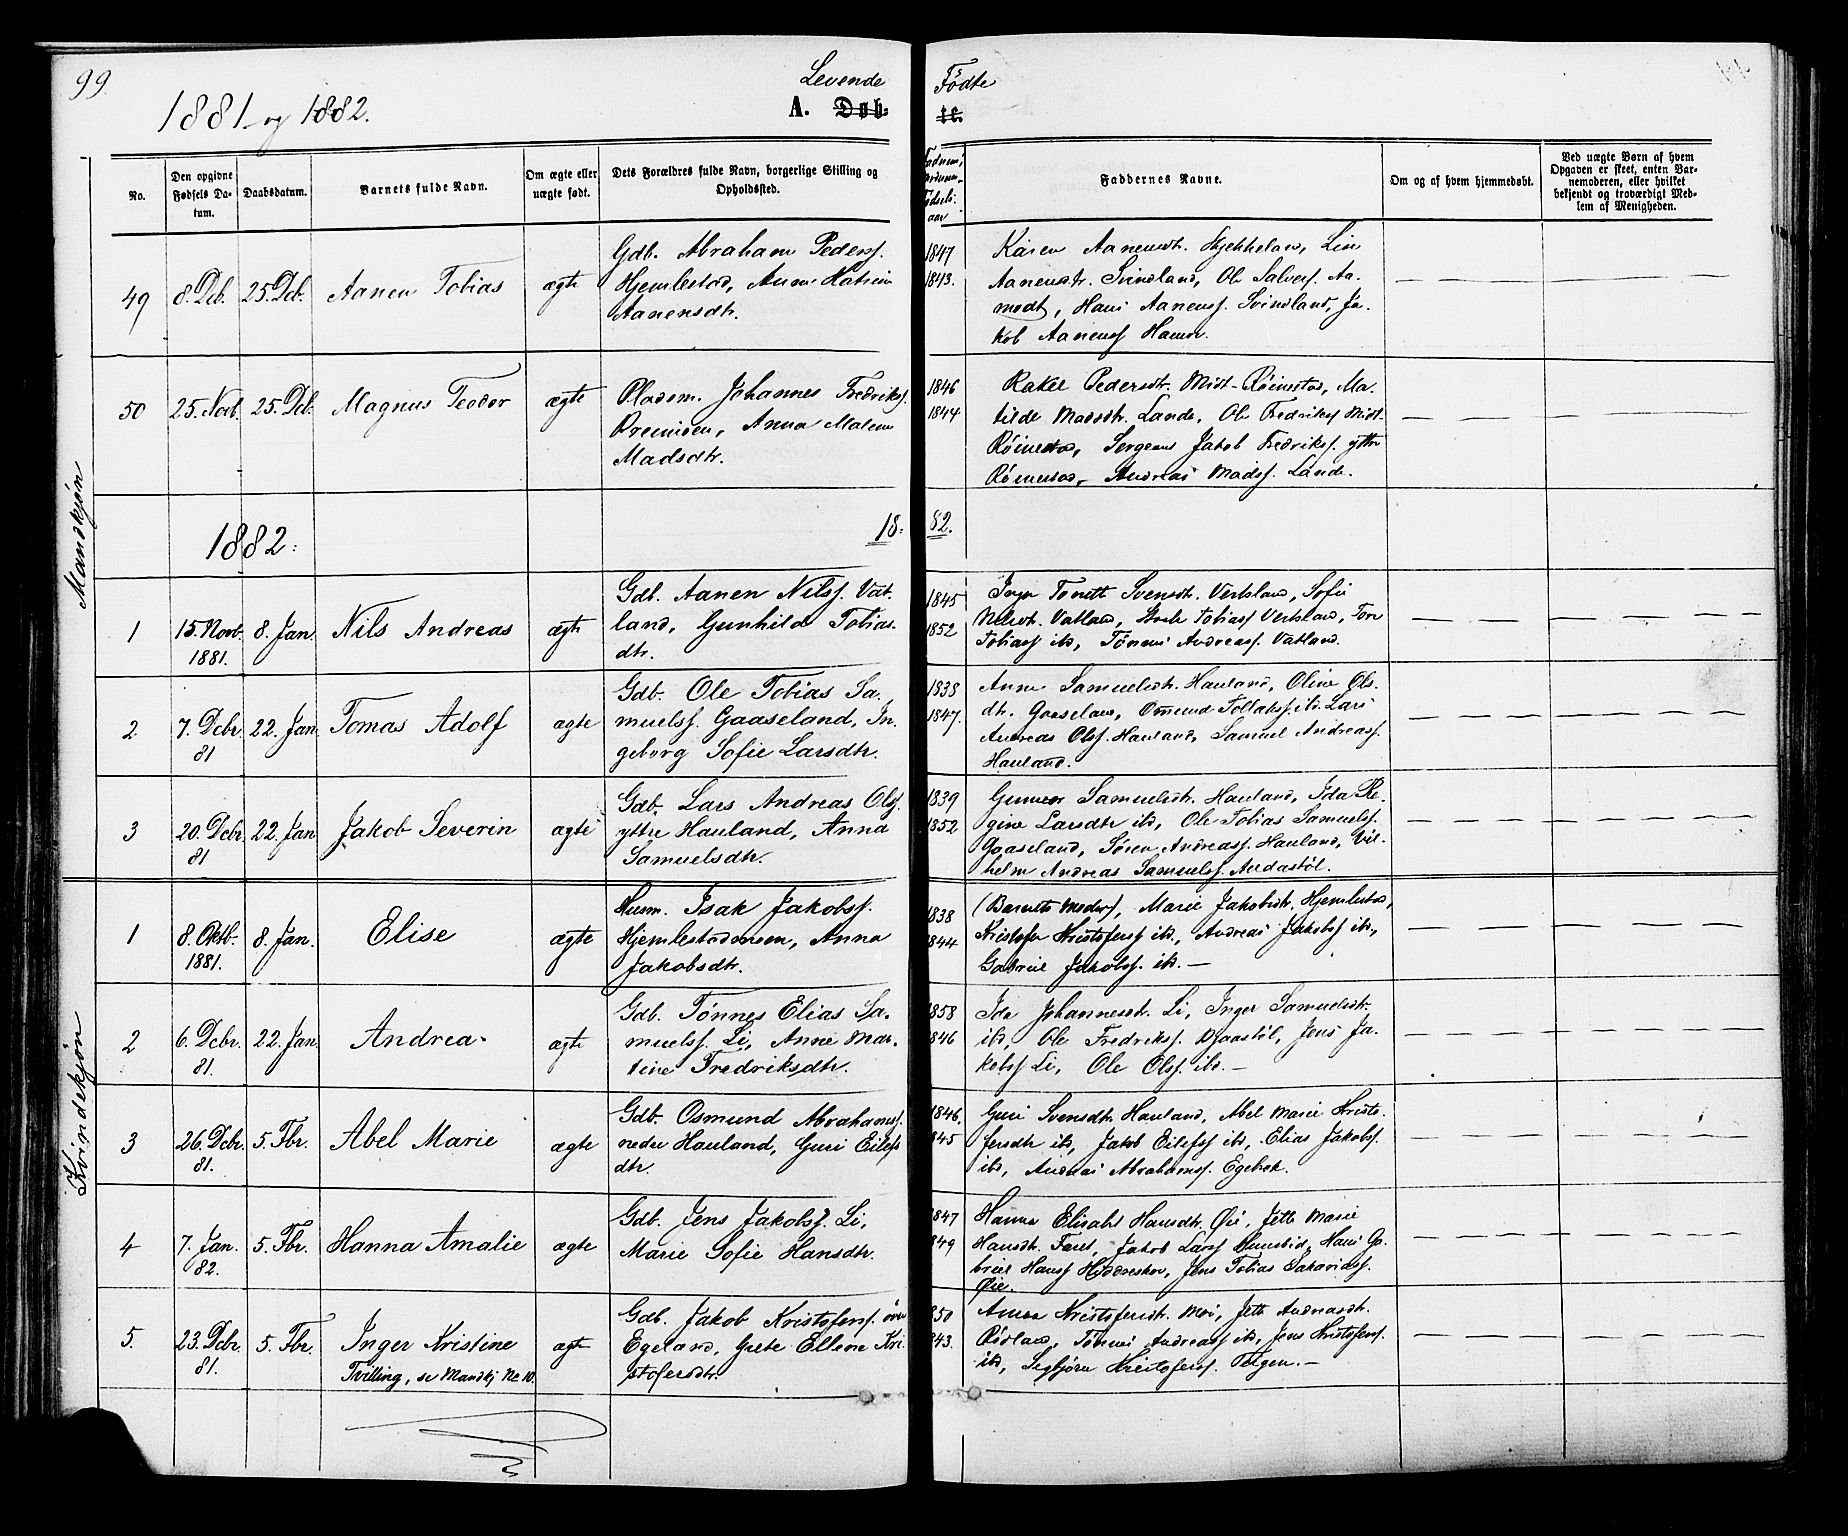 99
1881 og 1882.
Levende Fødte
A. Døbte.
No.
Den opgivne Fødsels Datum.
Daabsdatum.
Barnets fulde Navn.
Om ægte eller uægte født.
Dets Forældres fulde Navn, borgerlige Stilling og Opholdssted.
Faddernes Navne.
Om og af hvem hjemmedøbt.
Ved uægte Børn af hvem
Opgaven er skeet, enten Bar-
nemoderen, eller hvilket
bekjendt og troværdigt Med-
lem af Menigheden.
Mandkjøn
49 8. Dcb. 25. Dcb. Aanen Tobias ægte
Gdb. Abraham Peders.
Hjemlestad, Anne
Aanensdtr.
1847
1843.
Karen Aanensdtr.
Aanensdtr. Svindland, Ole Salves. Aa-
modt, Hans Aanens. Svindland, Ja-
kob Aanens
50 25. Novb. 25. Dcb. Magnus Teodor ægte
Pladsm. Johannes Fredriks.
Anna Malene
Madsdtr.
1846
1844
Rakel Pedersdtr. Midt-Röinestad, Ma-
tilde Madsdtr. Lande, Ole Fredriks Midt-
Röinestad, Sergeant Jakob Fredriks. ytre
Röinestad, Andreas Mads. Lande.
1882:
18: 82.
1 15. Novb. 1881. 8. Jan. Nils Andreas ægte
Gdb. Aanen Nilss. Vat-
land, Gunhild Tobias-
dtr.
1845
1852
Svensdtr. Sofie
Nilsdtr. Vatland, Tobias
Tobiass ibd, Tönnes Andreass. Vatland.
2 7. Dcbr. 81 22. Jan. Tomas Adolf ægte
Gdb. Ole Tobias Sa-
muelss. Gaaseland, In-
geborg Sofie Larsdtr.
1838
1847.
Anne Samuelsdtr. Hauland, Oline Ols-
dtr. Gaaseland, Osmund ibd. Lars
Andreas Olss. Hauland, Samuel Andreass.
Hauland.
3 20. Dcbr. 81 22. Jan Jakob Severin ægte
Gdb. Lars Andreas Olss.
ytre Hauland, Anna
Samuelsdtr.
1839
1852
Gunvor Samuelsdtr. Hauland, Ida Re-
gine Larsdtr ibd, Ole Tobias Samuelss.
Gaaseland, Sören Andreass. Hauland, Vil-
helm Andreas Samuelss. Audastöl.
Kvindekjøn
1 8. Oktb. 1881. 8. Jan. Elise ægte
Husm. Isak Jakobss.
Hjemlestadmoen, Anna
Jakobsdtr.
1838
1844
(Barnets Moder), Marie Jakobsdtr. Hjemlestad,
Kristofer Kristofers ibd., Andreas Jakobss ibd.,
Gabriel Jakobss. ibd. —
2 6. Dcbr. 81. 22. Jan. Andrea ægte
Gdb. Tönnes Elias Sa-
muelss. Li, Anne Mar-
tine Fredriksdtr.
1858
1846
Ida Johannesdtr. Li, Inger Samuelsdtr.
ibd, Ole Fredriks. Jens Ja-
kobss Li, Ole Olss. ibd. —
3 26. Dcbr. 81. 5. Fbr. Abel Marie ægte
Gdb. Osmund Abrahamss.
nedre Hauland, Guri Eilefs
dtr.
1846.
1845
Guri Svensdtr. Hauland, Abel Marie Kristo-
fersdtr ibd, Jakob Eilefss ibd, Elias Jakobss.
ibd, Andreas Abrahamss. Egebak.
4 7. Jan. 82. 5. Fbr. Hanna Amalie ægte
Gdb. Jens Jakobss. Li,
Marie Sofie Hansdtr.
1847
1849
Hanna Elisabet Hansdtr. Öie, Jette Marie
Hansdtr. Jakob Larss Hans Ga-
briel Hanss Jens Tobias
Öie.
5. 23. Dcbr. 81. 5. Fbr. Inger Kristine ægte
Tvilling, se Mandkj No 10.
Gdb. Jakob Kristofers. övre
Egeland, Grete Ellene Kri-
stofersdtr.
1850
1843.
Anna Kristofersdtr. Moi, Jette Andreasdtr.
Rödland, Tönnes Andreass ibd, Jens Kristofers.
ibd, Segbjörn Kristofers. —